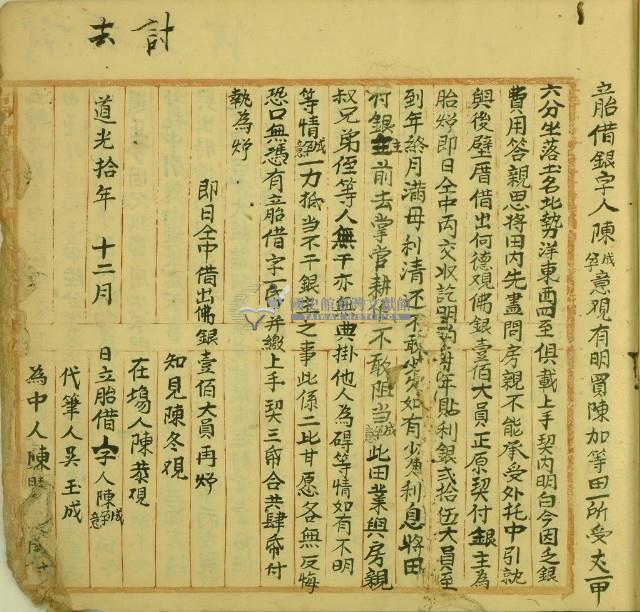 計去
立胎借銀字人陳成筆意观有明買陳加等田一所受丈一甲
六分坐落土名北勢洋東西四至俱載上手契内明白今因乏銀
費用答親思將田内先盡問房親不能承受外托中引就
與後壁厝借出何德观佛銀壹佰大員正原契付銀主為
胎炤即日仝中兩交收訖明約每年貼利銀弍拾伍大員至
到年終月滿母利清还不敢少欠如有少欠利息將田
付銀主前去掌管耕不敢阻当此田業與房親
叔兄弟侄等人無干亦典掛他人為碍等情如有不明
等情成意一力抵当不干銀之事此係二比甘愿各無反悔
恐口無憑有立胎借字一帋并繳上手契三帋合共肆帋付
執為炤
即日仝中借出佛銀壹佰大員再炤
知見陳冬观
在塲人陳恭观
道光拾年十二月日立胎借字人陳成意
代筆人吴玉成
為中人陳
國史館臺灣文獻館
TAIWAN HISTORICA